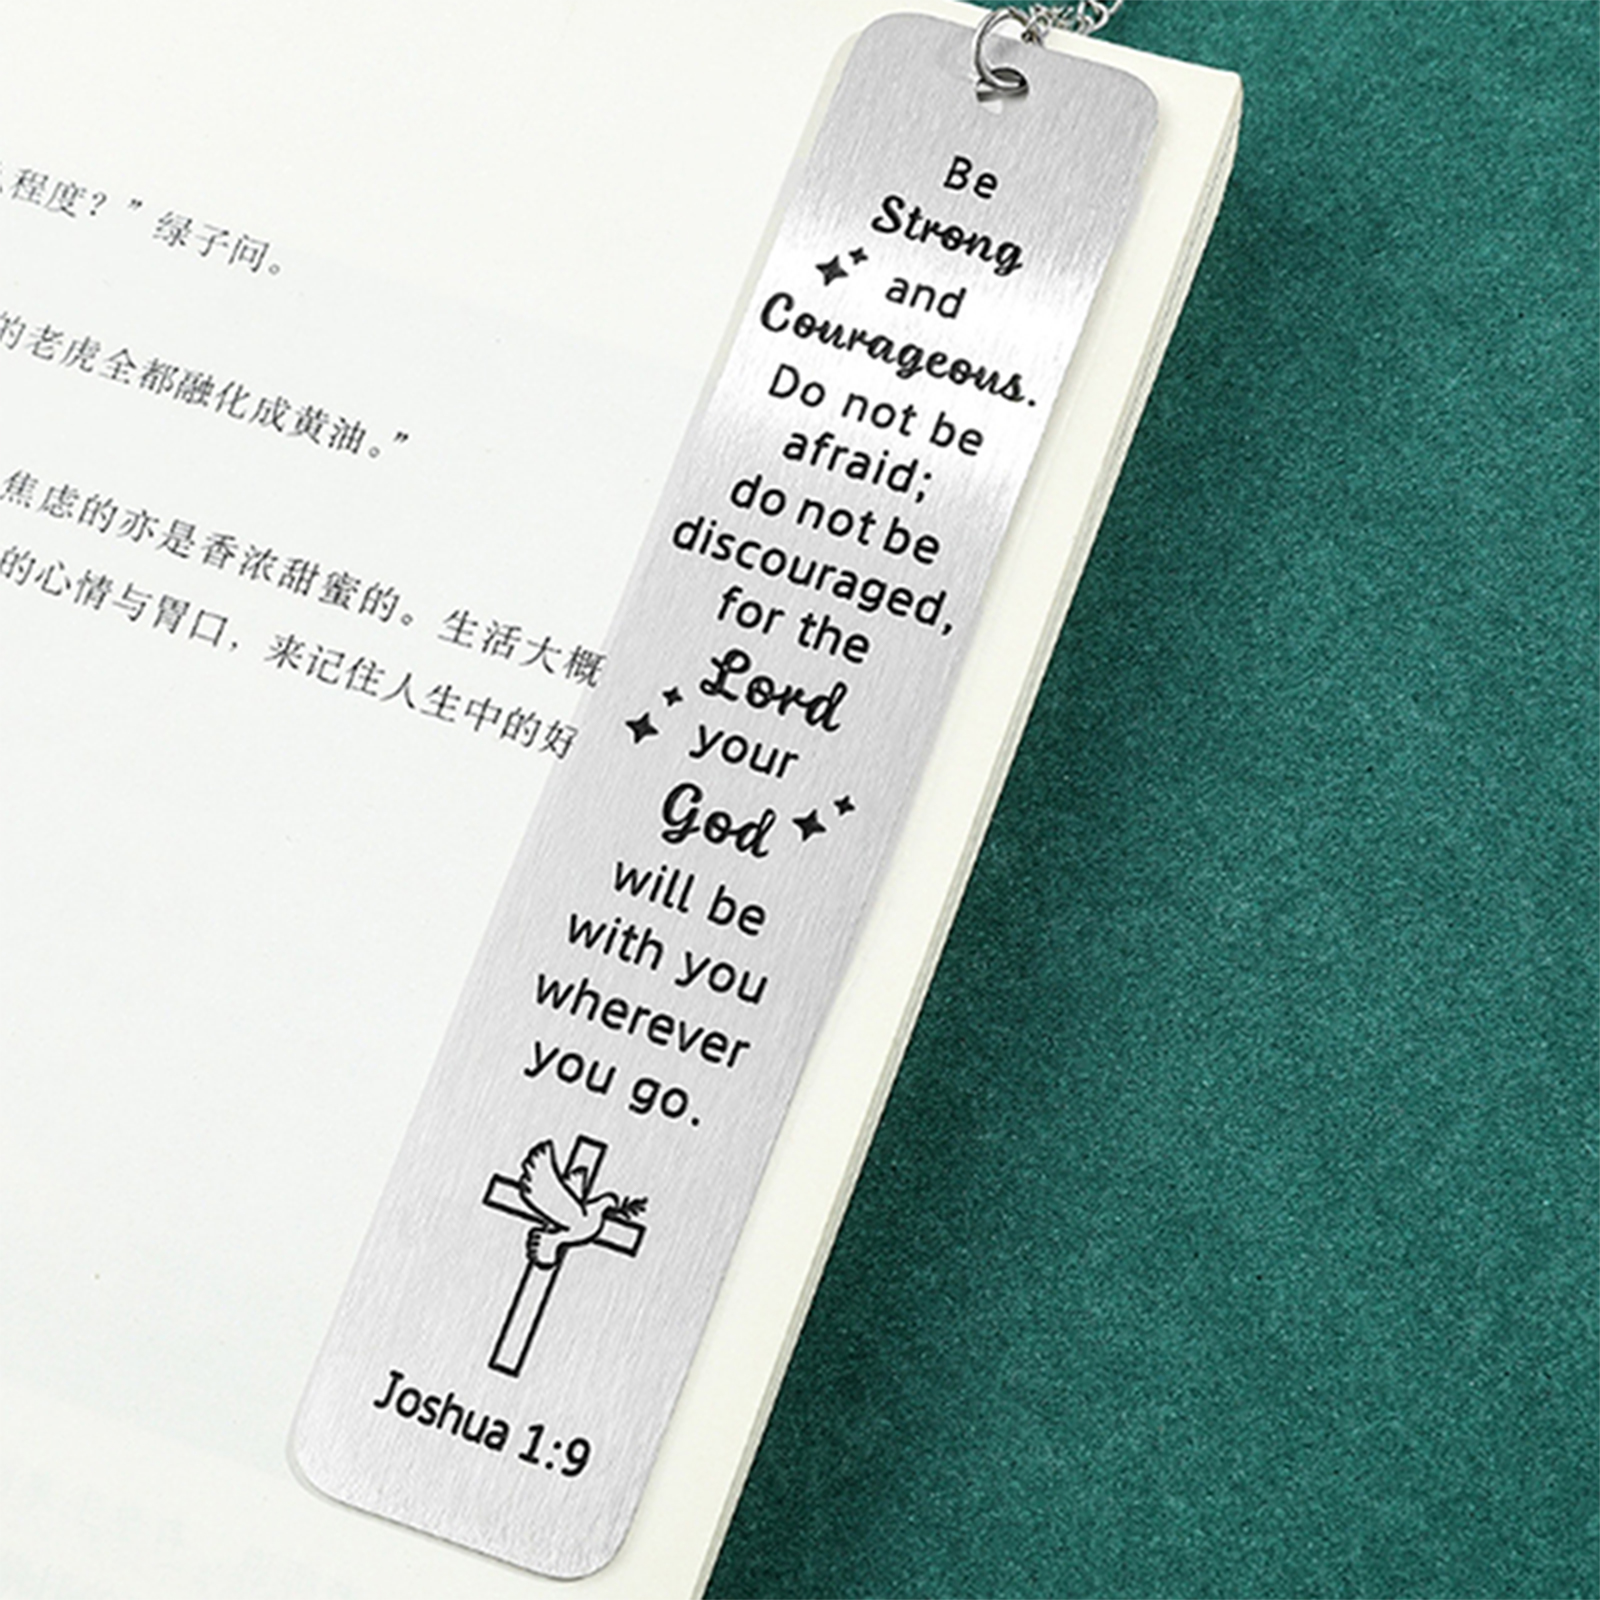 程度？”绿子问。
的老虎全都融化成黄油。”
焦虑的亦是香浓甜蜜的。生活大概
的心情与胃口，来记住人生中的好
Be
Strong
and
Courageous.
Do not be
afraid;
do not be
discouraged,
for the
Lord
your
God
will be
with you
wherever
you go.
Joshua 1:9